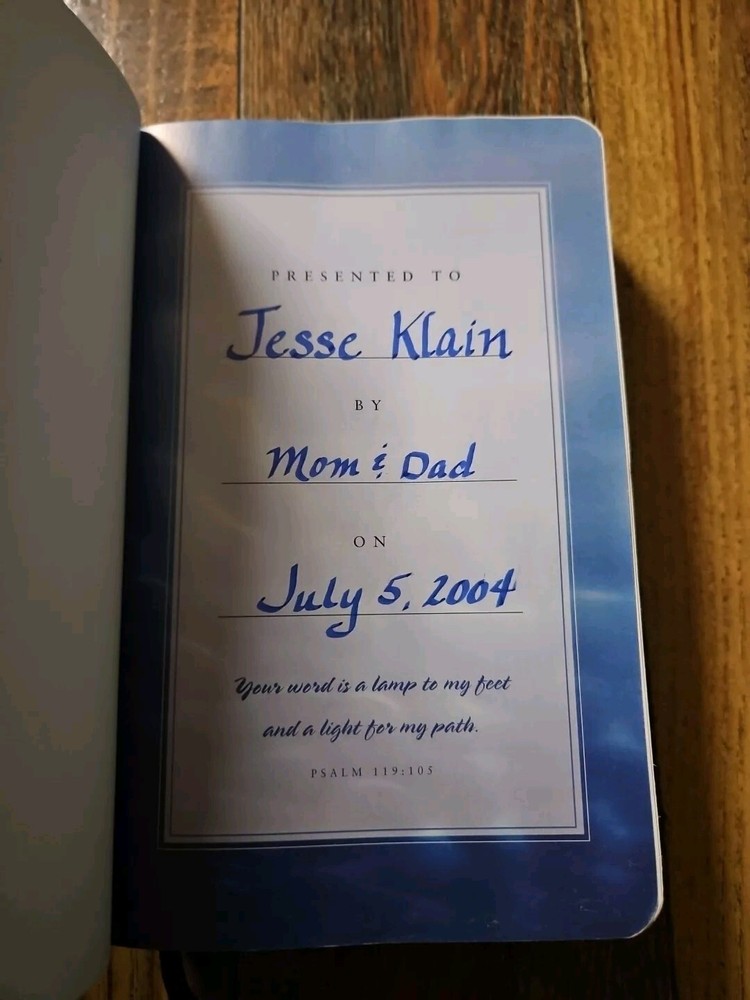 PRESENTED TO
Jesse Klain
BY
Mom & Dad
ON
July 5, 2004
Your word is a lamp to my feet
and a light for my path.
PSALM 119:105